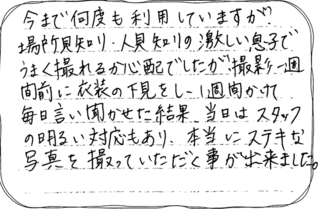 今まで何度も利用していますが、
場所見知り・人見知りの激しい息子で
うまく撮れるか心配でしたが撮影一週
間前に衣装の下見をし、一週間かけて
毎日言い聞かせた結果、当日はスタッフ
の明るい対応もあり、本当にステキな
写真を撮っていただく事が出来ました。